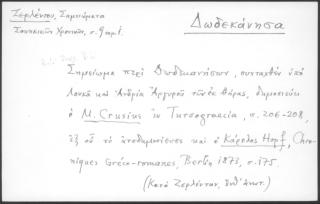 Ζερλέντου, Σημειώματα
Δωδεκάνησα
Σημείωμα περὶ Δωδεκανήσων, συνταχθὲν ὑπὸ
Λουκᾶ καὶ Ἀνδρέα Ἀργυροῦ τῶν ἐκ Θήρας, δημοσιεύει
ὁ M. Crusius ἐν Turcograecia, σ. 206-208,
ἐξ οὗ τὸ ἀναδημοσίευσε καὶ ὁ Κάρολος Hopf, Chro-
niques Gréco-romanes, Berlin 1873, σ. 175.
(Κατὰ Ζερλέντην, ἔνθ' ἀνωτ.)